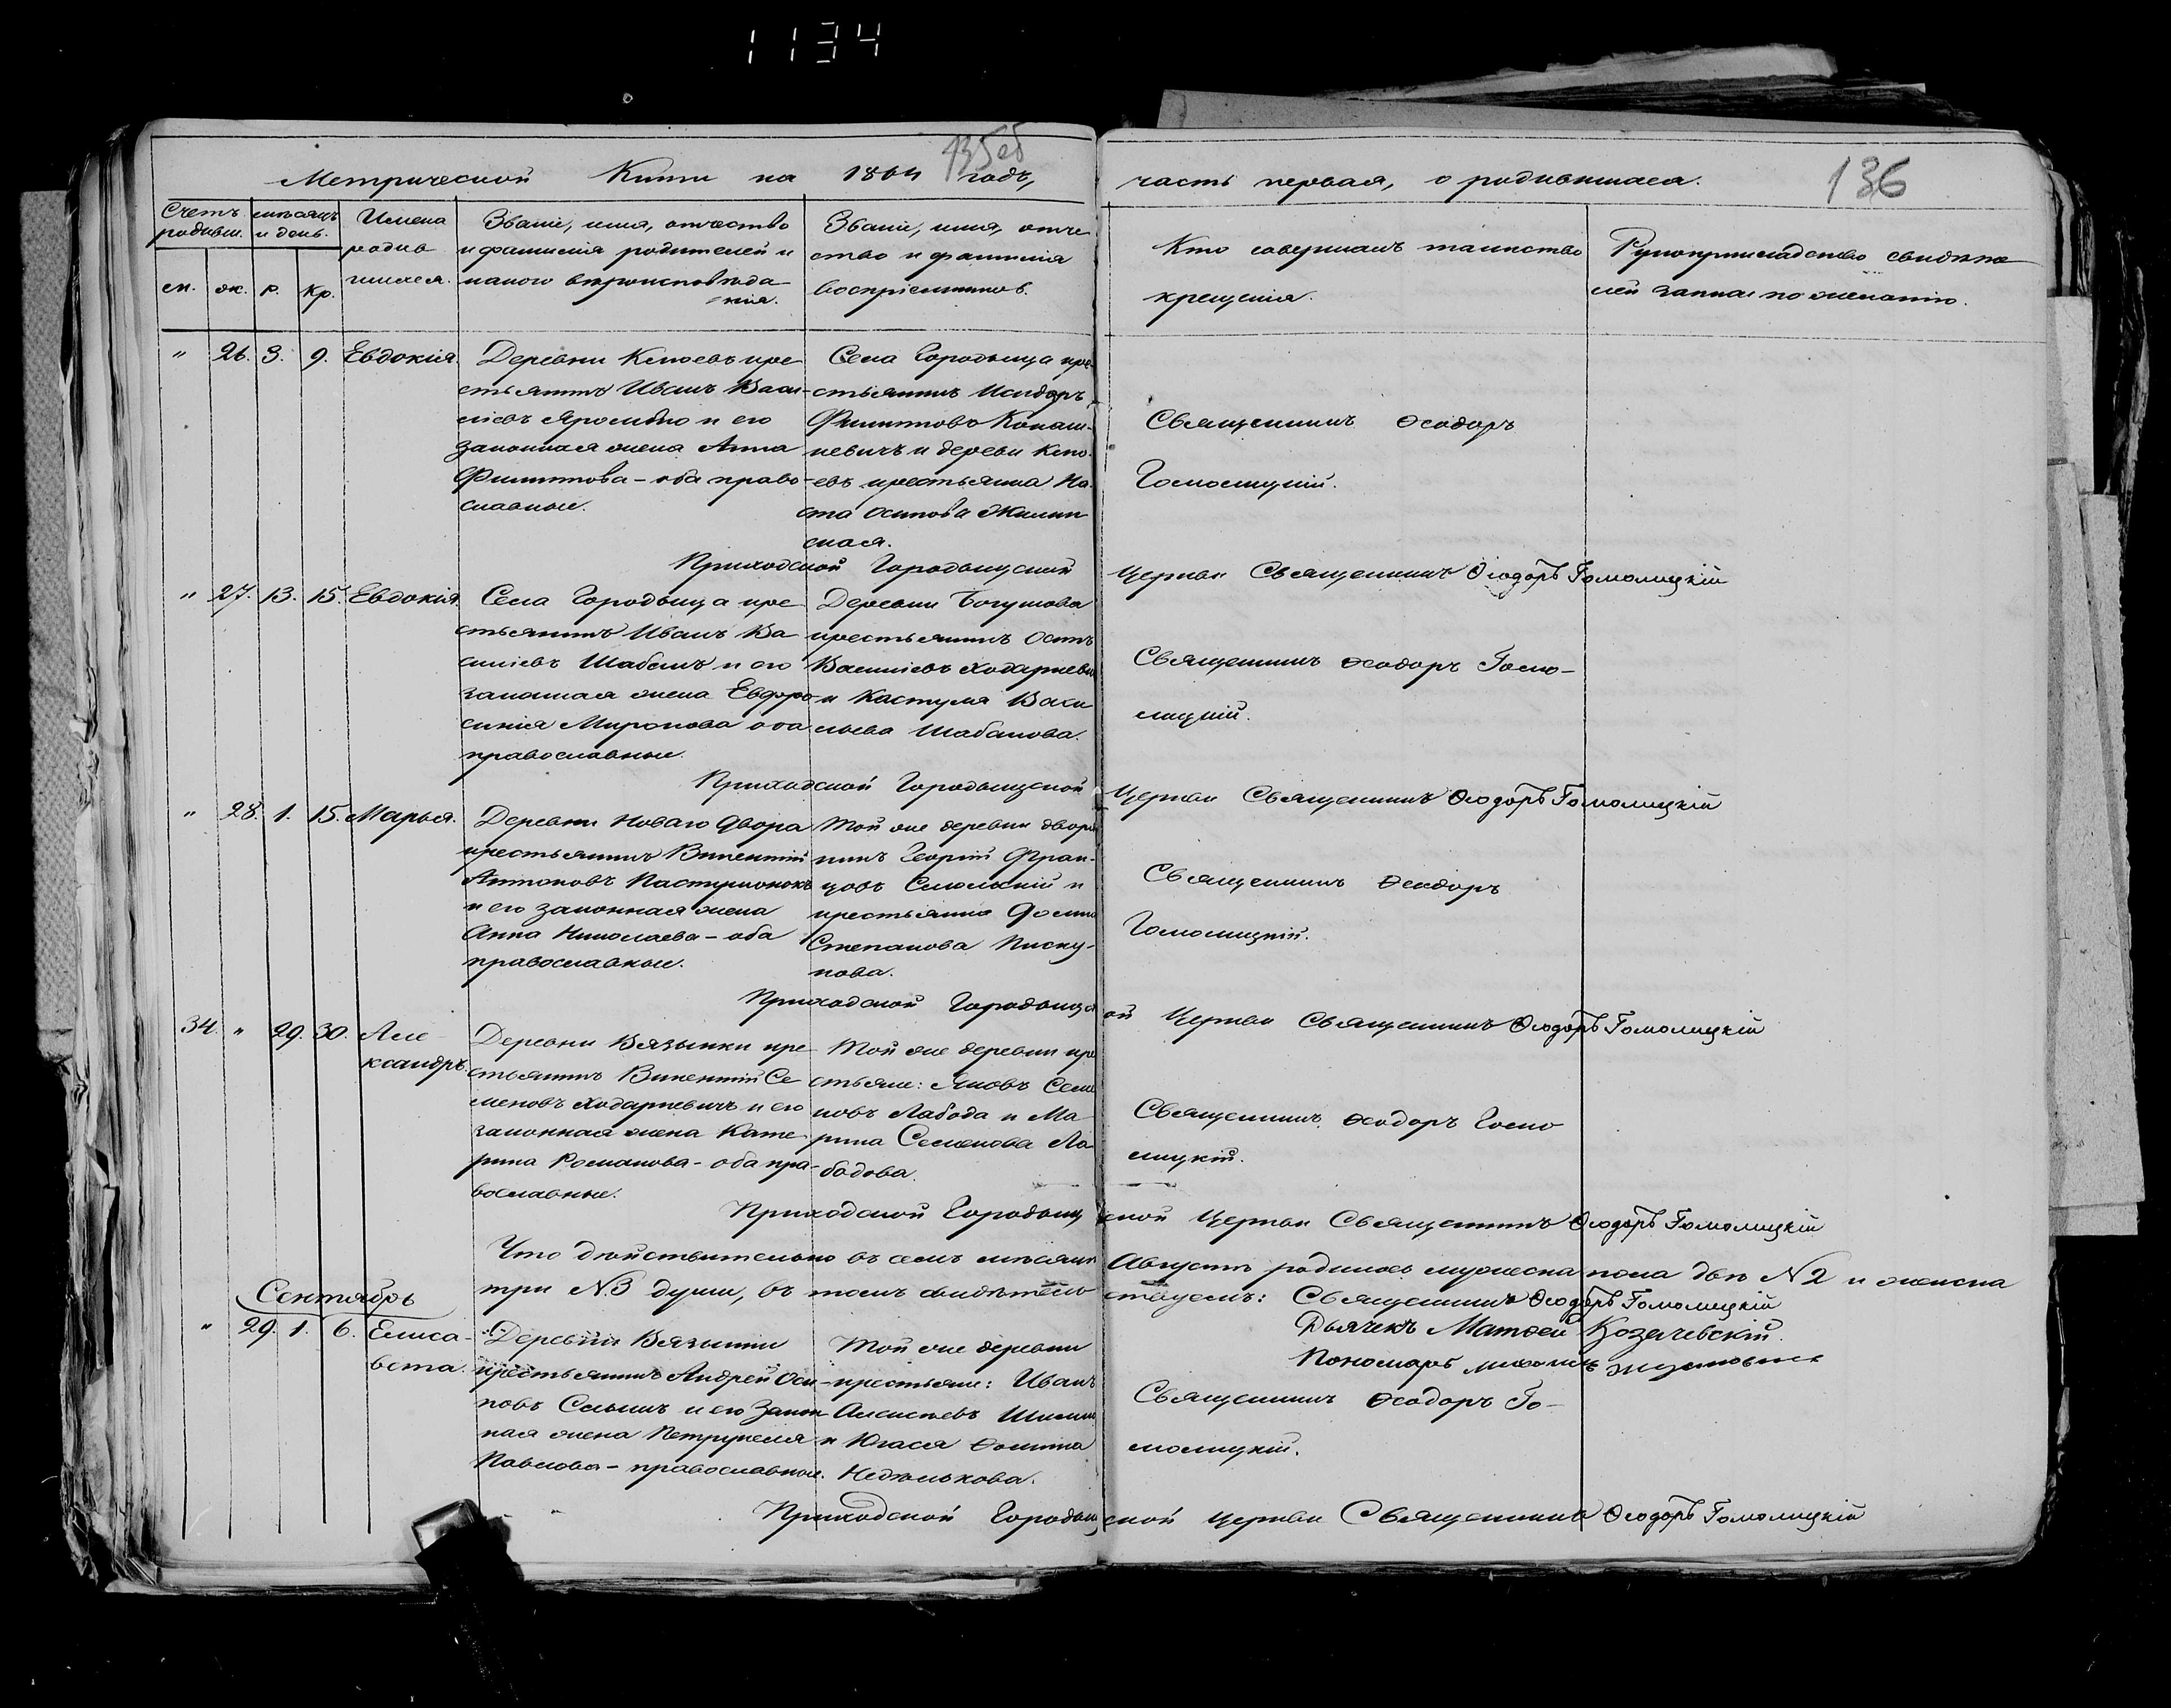 1134
135об
136
Метрической Книги на 1864 годъ,
часть первая, о родившихся.
Счетъ родивш.
мѣсяцъ и день.
Имена родив
шихся.
Званіе, имя, отчество
и фамилія родителей и
какого вѣроисповѣда
нія.
Званіе, имя, отче
ство и фамилія
воспріемниковъ.
Кто совершалъ таинство
крещенія.
Рукоприкладство свидѣте
лей записи по желанію.
м. ж. р. кр.
" 26. 3. 9. Евдокія.
Деревни кре
стьянинъ Иванъ Васи-
ліевъ и его
законная жена Анна
Филиппова - оба право
славные.
Села Городыща кре
стьянинъ Исидоръ
Филипповъ Конаш-
невичъ и деревни
крестьянка На
ста Осипова Жилин
ская.
Священникъ Ѳеодоръ
Гомолицкій.
Приходской Городыщской Церкви Священникъ Ѳеодоръ Гомолицкій
" 27. 13. 15. Евдокія.
Села Городыща кре
стьянинъ Иванъ Ва
силіевъ Шабанъ и его
законная жена Евфро
синія Миронова оба
православные.
Деревни Богушова
крестьянинъ Осипъ
Василіевъ Ходаркевич
и Кастуля Васи
льева Шабанова.
Священникъ Ѳеодоръ Гомо-
лицкій.
Приходской Городыщской Церкви Священникъ Ѳеодоръ Гомолицкій
" 28. 1. 15. Марья.
Деревни Новаго Двора
крестьянинъ Викентій
Антоновъ Пастушонокъ
и его законная жена
Анна Николаева - оба
православные.
Той же деревни дворя
нинъ Георгій Фран-
цовъ и
крестьянка
Степанова Писку-
нова.
Священникъ Ѳеодоръ
Гомолицкій.
Приходской Городыщской Церкви Священникъ Ѳеодоръ Гомолицкій
34. " 29. 30. Але
ксандръ.
Деревни Вязынки кре
стьянинъ Викентій Се
меновъ Ходаркевичъ и его
законная жена Кате
рина Романова - оба пра-
вославные.
Той же деревни кре
стьяне: Яковъ Семе
новъ Лабода и Ма
рина Семенова Ла
бодова.
Священникъ Ѳеодоръ Гомо
лицкій.
Приходской Городыщской Церкви Священникъ Ѳеодоръ Гомолицкій
Что дѣйствительно въ семъ мѣсяцѣ Августѣ родилось мужеска пола двѣ №2 и женска
три №3 души, въ томъ свидѣтельствуемъ: Священникъ Ѳеодоръ Гомолицкій
Дьячекъ Матѳей Козачевскій.
Пономарь
Сентябрь
" 29. 1. 6. Елиса-
вета.
Деревни Вязынки
крестьянинъ Андрей Оси-
повъ и его закон
ная жена Петрунеля
Павлова - православные.
Той же деревни
крестьяне: Иванъ
Алексѣевъ
и Югася Ѳомина
Недзѣлькова.
Священникъ Ѳеодоръ Го-
молицкій.
Приходской Городыщской Церкви Священникъ Ѳеодоръ Гомолицкій